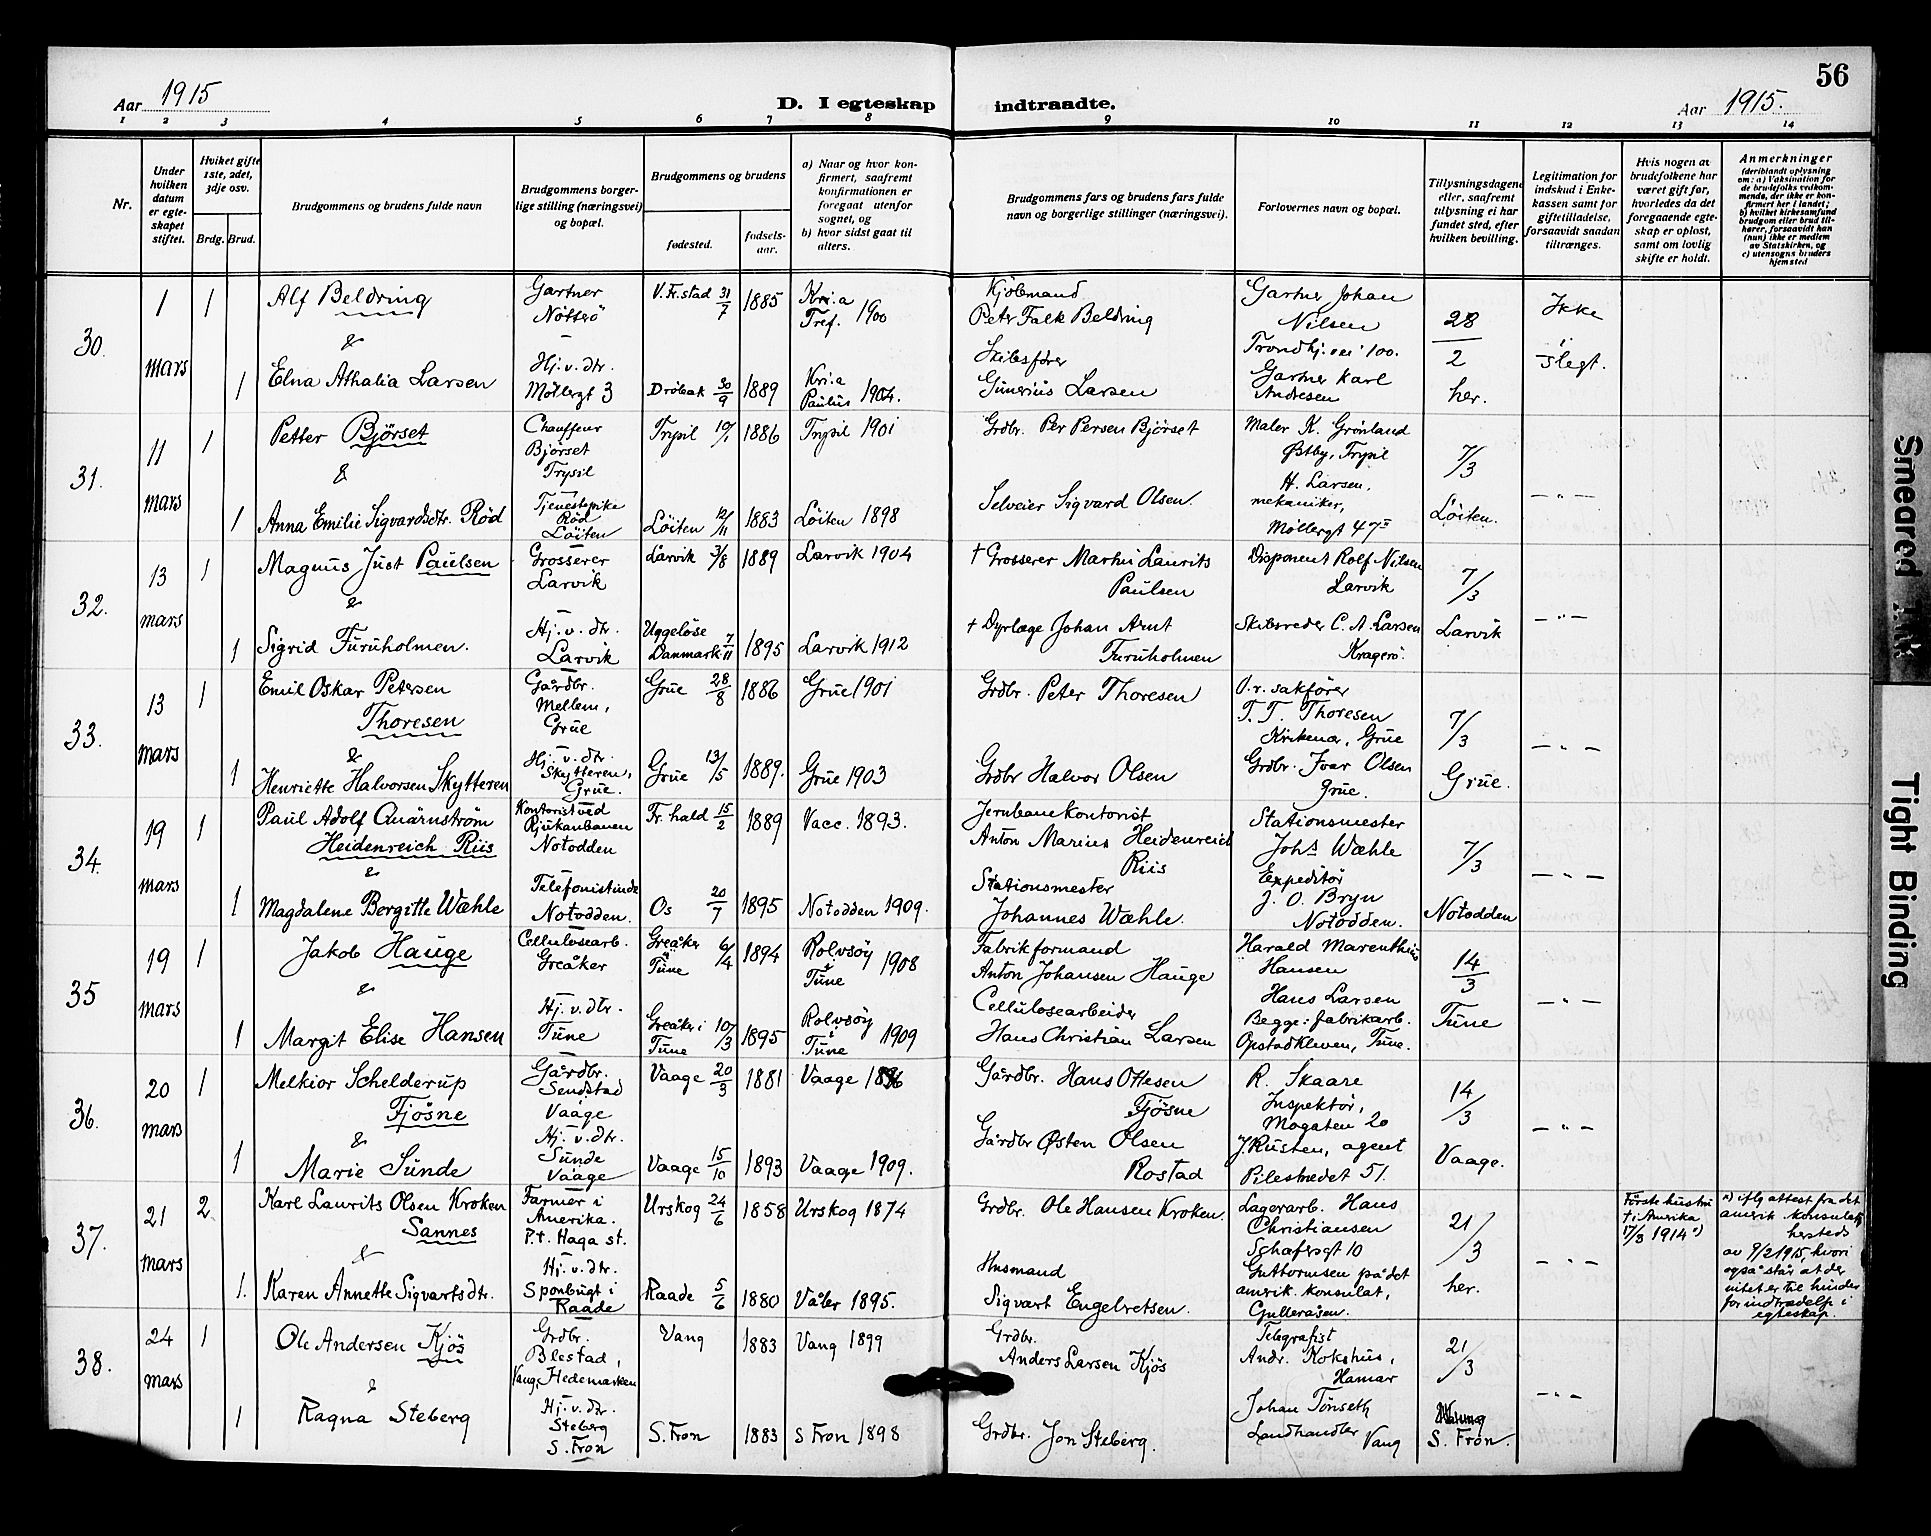 56
Aar 1915
D. I egteskap indtraadte.
Aar 1915.
1 2 3 4 5 6 7 8 9 10 11 12 13 14
Nr.
Under hvilken datum er egteskapet stiftet.
Hviket gifte 1ste, 2det, 3dje osv.
Brdg. Brud.
Brudgommens og brudens fulde navn
Brudgommens borgerlige stilling (næringsvei) og bopæl.
Brudgommens og brudens
fødested.
fødselsaar.
a) Naar og hvor konfirmert, saafremt konfirmationen er foregaat utenfor sognet, og
b) hvor sidst gaat til alters.
Brudgommens fars og brudens fars fulde navn og borgerlige stillinger (næringsvei).
Forlovernes navn og bopæl.
Tillysningsdagene eller, saafremt tillysning ei har fundet sted, efter hvilken bevilling.
Legitimation for indskud i Enkekassen samt for giftetilladelse, forsaavidt saadan tiltrænges.
Hvis nogen av brudefolkene har været gift før, hvorledes da det foregaaende egteskap er opløst, samt om lovlig skifte er holdt.
Anmerkninger (deriblandt oplysning om: a) Vaksination for de brudefolks vedkommende, der ikke er konfirmert her i landet; b) hvilket kirkesamfund brudgom eller brud tilhører, forsaavidt han (hun) ikke er medlem av Statskirken, og c) utensogns bruders hjemsted
30. 1 mars 1
Alf Beldring
Gartner Nötterö
V. Fr.stad 31/7 1885
Kri.a Tref. 1900
Kjölemand Peter Falk Beldring
Gartner Johan Nilsen Trondhj.vei 100.
28/2 her.
Ikke i slegt.
&
1 Elna Athalia Larsen
Hj. v. dtr. Möllergt 3
Dröbak 30/9 1889
Kri.a Paulus 1904.
Skibsfører Gunerius Larsen
Gartner Karl Andresen
31. 11 mars 1
Petter Björset
Chauffeur Björset Trysil
Trysil 10/1 1886
Trysil 1901
Grdbr. Per Persen Björset
Maler K. Grönland Østby, Trysil
7/3 Löiten.
- " -
&
1 Anna Emilie Sigvardsdtr. Röd
Tjenestepike Röd Löiten
Löiten 12/11 1883
Löiten 1898
Selveier Sigvard Olsen.
H. Larsen, mekaniker, Møllergt 47 II
32. 13 mars 1
Magnus Just Paulsen
Grosserer Larvik
Larvik 3/8 1889
Larvik 1904
† Grosserer Martin Laurits Paulsen
Disponent Rolf Nilsen Larvik
7/3 Larvik
- " -
&
1 Sigrid Furuholmen.
Hj. v. dtr. Larvik
Uggelöse Danmark 7/11 1895
Larvik 1912
† Dyrlæge Johan Arnt Furuholmen
Skibsreder C. A. Larsen Kragerö.
33. 13 mars 1
Emil Oskar Petersen Thoresen
Gårdbr. Mellem, Grue
Grue 28/8 1886
Grue 1901
Grdbr. Peter Thoresen
O.r. sakfører T. T. Thoresen Kirkenær, Grue
7/3 Grue.
- " -
&
1 Henriette Halvorsen Skytteren
Hj. v. dtr. Skytteren, Grue.
Grue 13/5 1889.
Grue 1903
Grdbr Halvor Olsen
Grdbr. Ivar Olsen Grue.
34. 19 mars 1
Paul Adolf Quarnström Heidenreich Riis
Kontorist ved Rjukanbanen Notodden
Fr. hald 15/2 1889
Vacc. 1893.
Jernbanekontorist Anton Marius Heidenreich Riis
Stationsmester Johs Wæhle
7/3 Notodden
- " -
&
1 Magdalene Bergitte Wæhle
Telefonistinde Notodden.
Os 20/7 1895
Notodden 1909.
Stationsmester Johannes Wæhle.
Expeditör J. O. Bryn Notodden.
35 19 mars 1
Jakob Hauge
Cellulosearb. Greåker
Greåker i Tune 6/4 1894
Rolvsøy i Tune 1908
Fabrikformand Anton Johansen Hauge
Harald Marenthius Hansen
14/3 Tune
- " -
&
1 Margit Elise Hansen
Hj. v. dtr. Tune
Greåker i Tune 10/3 1895
Rolvsøy i Tune 1909
Cellulosearbeider Hans Christian Larsen
Hans Larsen Begge: fabrikarb. Opstadkleven, Tune.
36. 20 mars 1
Melkior Schelderup Fjösne
Gårdbr. Sendstad Vaage
Vaage 20/3 1881
Vaage 1896
Gårdbr. Hans Ottesen Fjösne
R. Skaare Inspektör, Mogaten 20
14/3 Vaage.
- " -
&
1 Marie Sunde
Hj. v. dtr. Sunde Vaage
Vaage 15/10 1893
Vaage 1909.
Gårdbr Østen Olsen Rostad
J. Rusten, agent Pilestredet 51.
37. 21 mars 2
Karl Laurits Olsen Kroken Sannes
Farmer i Amerika. P.t. Haga st.
Urskog 24/6 1858
Urskog 1874
Grdbr. Ole Hansen Kroken.
Lagerarb. Hans Christiansen Schafersgt 10
21/3 her.
- " -
Förste hustru † i Amerika 17/3 1914 *)
*) iflg attest fra det amrik konsulat hersteds av 9/2 1915, hvori også står at der intet er til hinder for indtrædelse i egteskap.
&
1. Karen Annette Sigvartsdtr.
Hj. v. dtr. Sponbugt i Raade
Raade 5/6 1880
Våler 1895.
Husmand Sigvart Engelretsen.
Guttormsen på det amrik. konsulat, Gulleråsen.
38. 24 mars 1
Ole Andersen Kjös
Grdbr. Blestad, Vang, Hedemarken
Vang 1883
Vang 1899
Grdbr. Anders Larsen Kjös
Telegrafist Andr. Kokshus, Hamar
21/3 S. Fron.
- " -
&
1 Ragna Steberg
Hj. v. dtr. Steberg S. Fron
S. Fron 1883
S Fron 1898
Grdbr. Jon Steberg.
Johan Tönseth Landhandler Vang
Smeared Ink
Tight Binding